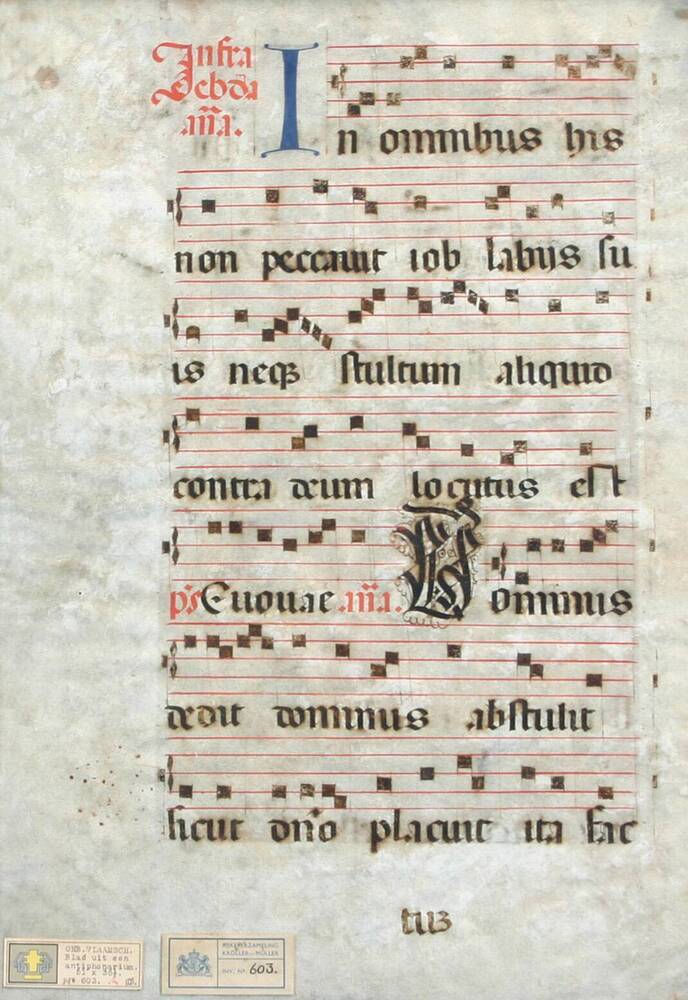 Infra
ebda
ana.
In omnibus his
non peccauit iob labijs su
is neq₃ stultum aliquid
contra deum locutus est
ps Euouae ana. Dominus
dedit dominus abstulit
sicut dño placuit ita fac
tuʒ
ONB.VLAAMSCH.
Blad uit een
antiphonarium.
pg# 603.
RIJKSVERZAMELING
KRÖLLER-MÜLLER
INV. Nr. 603.